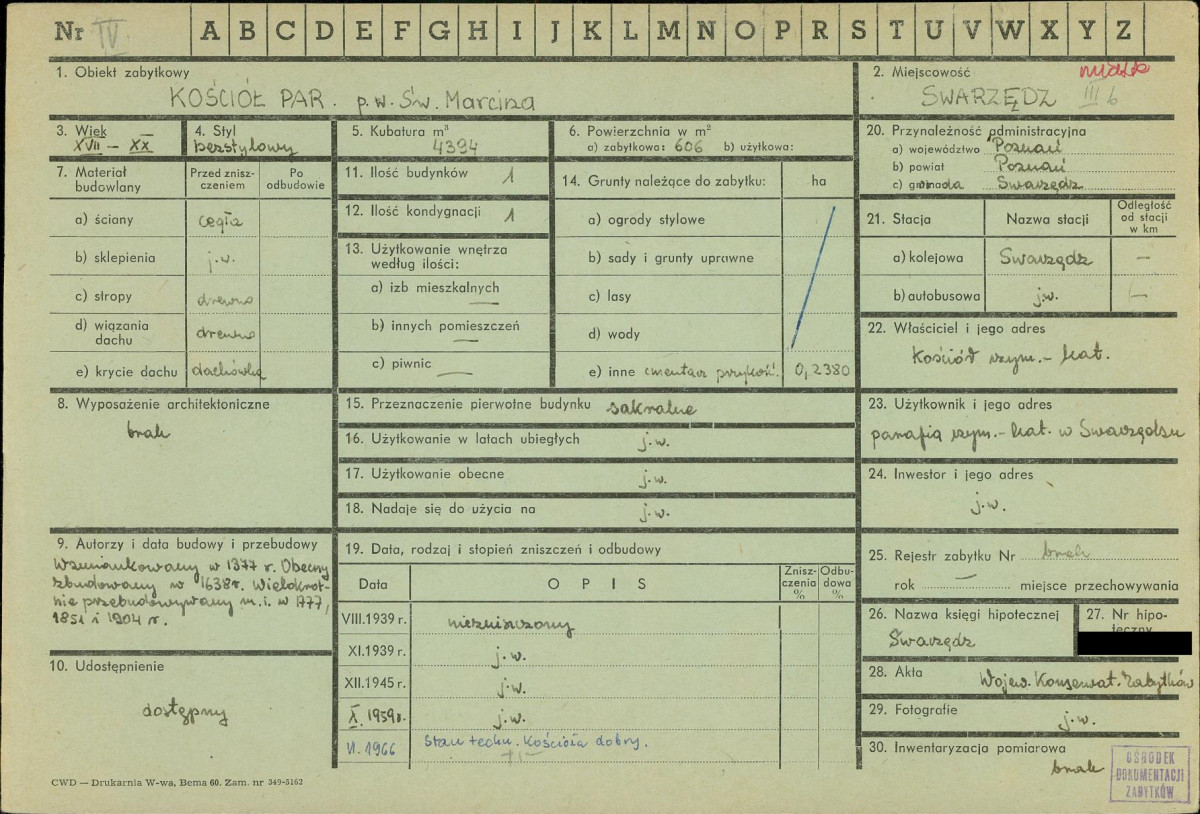 Nr IV A B C D E F G H I J K L M N O P R S T U V W X Y Z
1. Obiekt zabytkowy
KOŚCIÓŁ PAR. p.w. Św. Marcina
2. Miejscowość
SWARZĘDZ III b
3. Wiek
XVII – XX
4. Styl
bezstylowy
5. Kubatura m³
4394
6. Powierzchnia w m²
a) zabytkowa: 606 b) użytkowa:
20. Przynależność administracyjna
a) województwo Poznań
b) powiat Poznań
c) gmina Swarzędz
7. Materiał budowlany
Przed zniszczeniem
Po odbudowie
a) ściany cegła
b) sklepienia j.w.
c) stropy drewno
d) wiązania dachu drewno
e) krycie dachu dachówka
11. Ilość budynków 1
12. Ilość kondygnacji 1
13. Użytkowanie wnętrza
według ilości:
a) izb mieszkalnych —
b) innych pomieszczeń —
c) piwnic —
14. Grunty należące do zabytku: ha
a) ogrody stylowe
b) sady i grunty uprawne
c) lasy
d) wody
e) inne cmentarz przykość. 0,2380
21. Stacja
Nazwa stacji
Odległość
od stacji
w km
a) kolejowa Swarzędz —
b) autobusowa j.w. —
22. Właściciel i jego adres
Kościół rzym.-kat.
8. Wyposażenie architektoniczne
brak
15. Przeznaczenie pierwotne budynku sakralne
16. Użytkowanie w latach ubiegłych j.w.
17. Użytkowanie obecne j.w.
18. Nadaje się do użycia na j.w.
23. Użytkownik i jego adres
parafia rzym.-kat. w Swarzędzu
24. Inwestor i jego adres
j.w.
9. Autorzy i data budowy i przebudowy
Wzmiankowany w 1377 r. Obecny
zbudowany w 1638 r. Wielokrot-
nie przebudowywany m.i. w 1777,
1851 i 1904 r.
10. Udostępnienie
dostępny
19. Data, rodzaj i stopień zniszczeń i odbudowy
Data
OPIS
Znisz-
czenia
%
Odbu-
dowa
%
VIII.1939 r. niezniszczony
XI.1939 r. j.w.
XII.1945 r. j.w.
X.1959 r. j.w.
VI.1966 Stan techn. Kościoła dobry.
25. Rejestr zabytku Nr brak
rok — miejsce przechowywania
26. Nazwa księgi hipotecznej
Swarzędz
27. Nr hipo-
teczny
28. Akta Wojew. Konserwat. Zabytków
29. Fotografie j.w.
30. Inwentaryzacja pomiarowa
brak
OŚRODEK
DOKUMENTACJI
ZABYTKÓW
CWD — Drukarnia W-wa, Bema 60. Zam. nr 349-5162